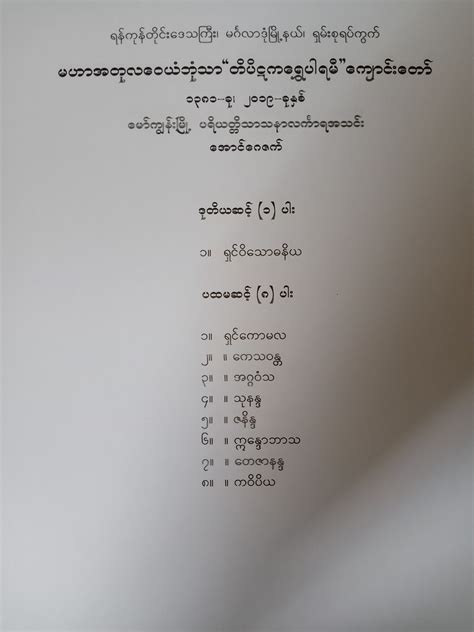 ရန်ကုန်တိုင်းဒေသကြီး၊ မင်္ဂလာဒုံမြို့နယ်၊ ရှမ်းစုရပ်ကွက်
မဟာအတုလဝေယံဘုံသာ“တိပိဋကရွှေပါရမီ”ကျောင်းတော်
၁၃၈၁-ခု၊ ၂၀၁၉-ခုနှစ်
မော်ကျွန်းမြို့ ပရိယတ္တိသာသနာလင်္ကာရအသင်း
အောင်ဂေဇက်
ဒုတိယဆင့် (၁) ပါး
၁။ ရှင်ဝိသောဓနိယ
ပထမဆင့် (၈) ပါး
၁။ ရှင်ကောမလ
၂။ ။ ကေသဝန္တ
၃။ ။ အဂ္ဂဝံသ
၄။ ။ သုနန္ဒ
၅။ ။ ဇနိန္ဒ
၆။ ။ ဣန္ဒောဘာသ
၇။ ။ တေဇာနန္ဒ
၈။ ။ ကဝိပိယ